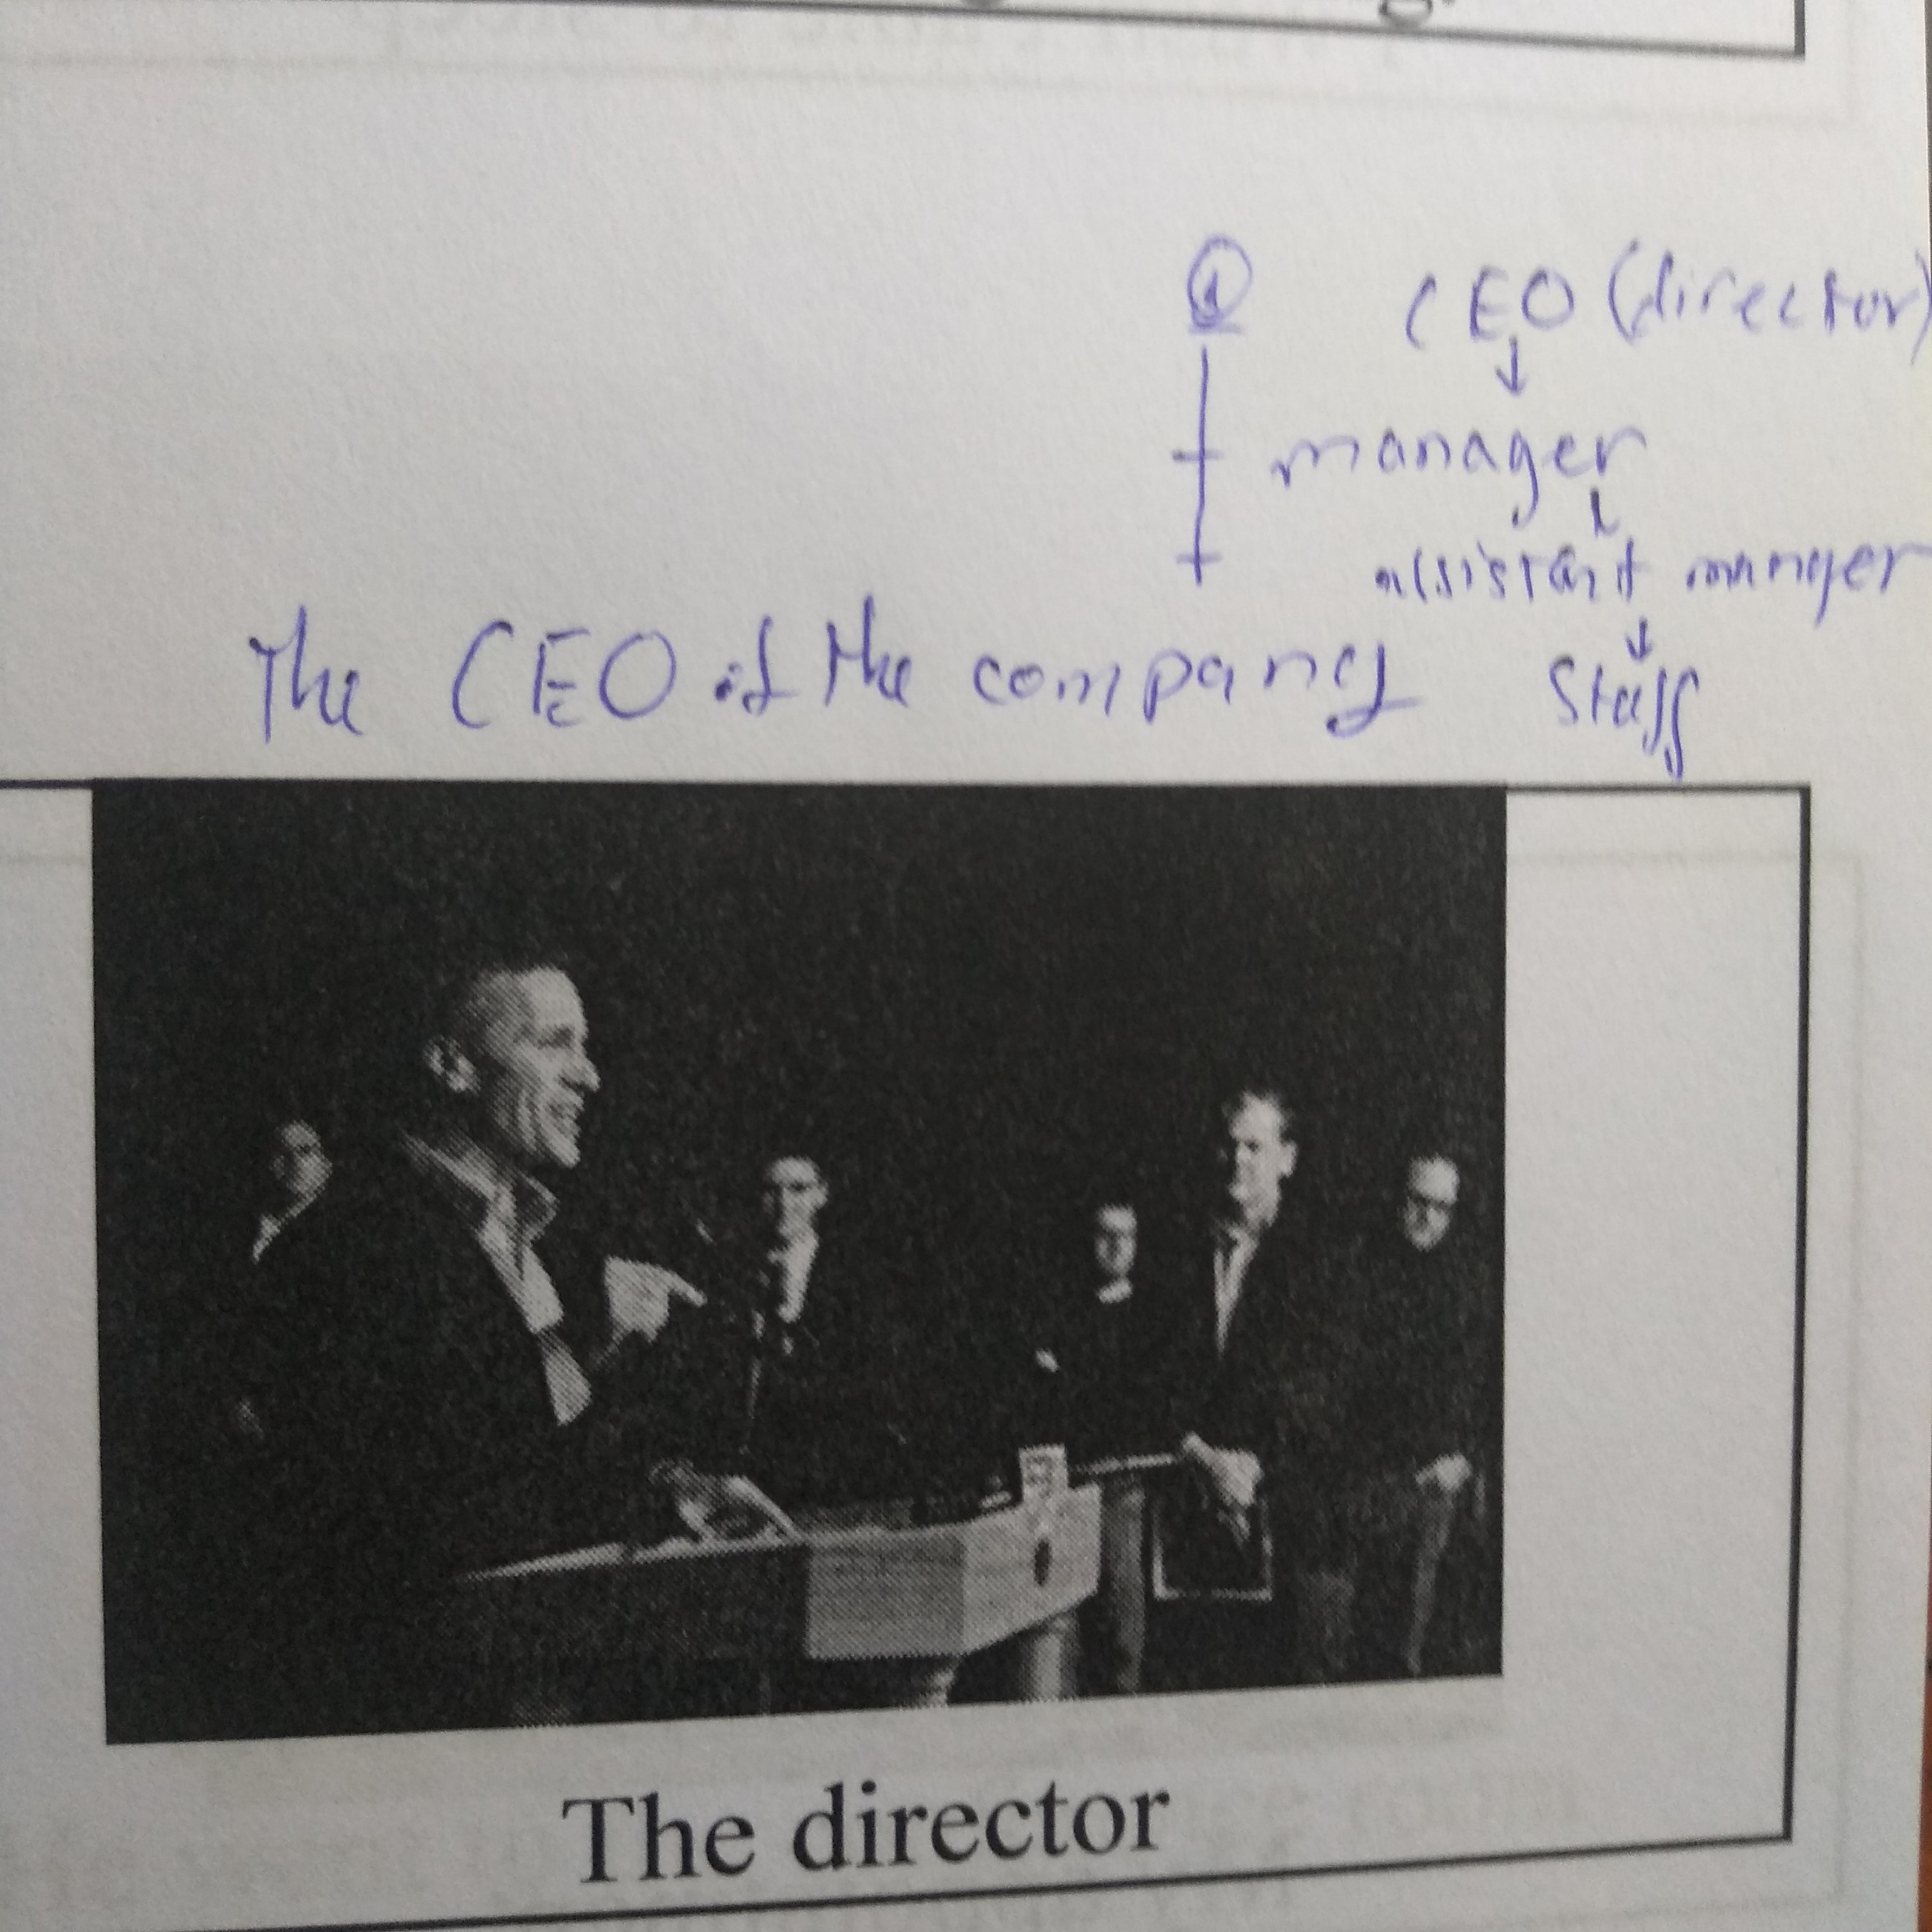 ① CEO (director)
↓
manager
↓
assistant manager
↓
The CEO of the company staff
The director